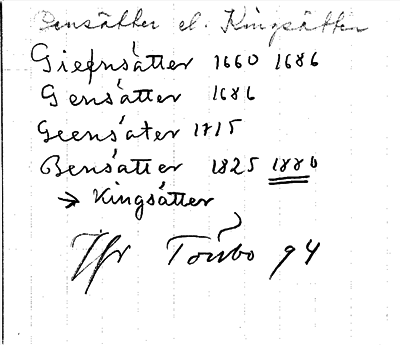 Densätter el. Kingsätter
Giefnsätter 1660 1686
Gensätter 1686
Geensäter 1715
Bensätter 1825 1880
→ Kingsätter
Jfr Torsbo 94